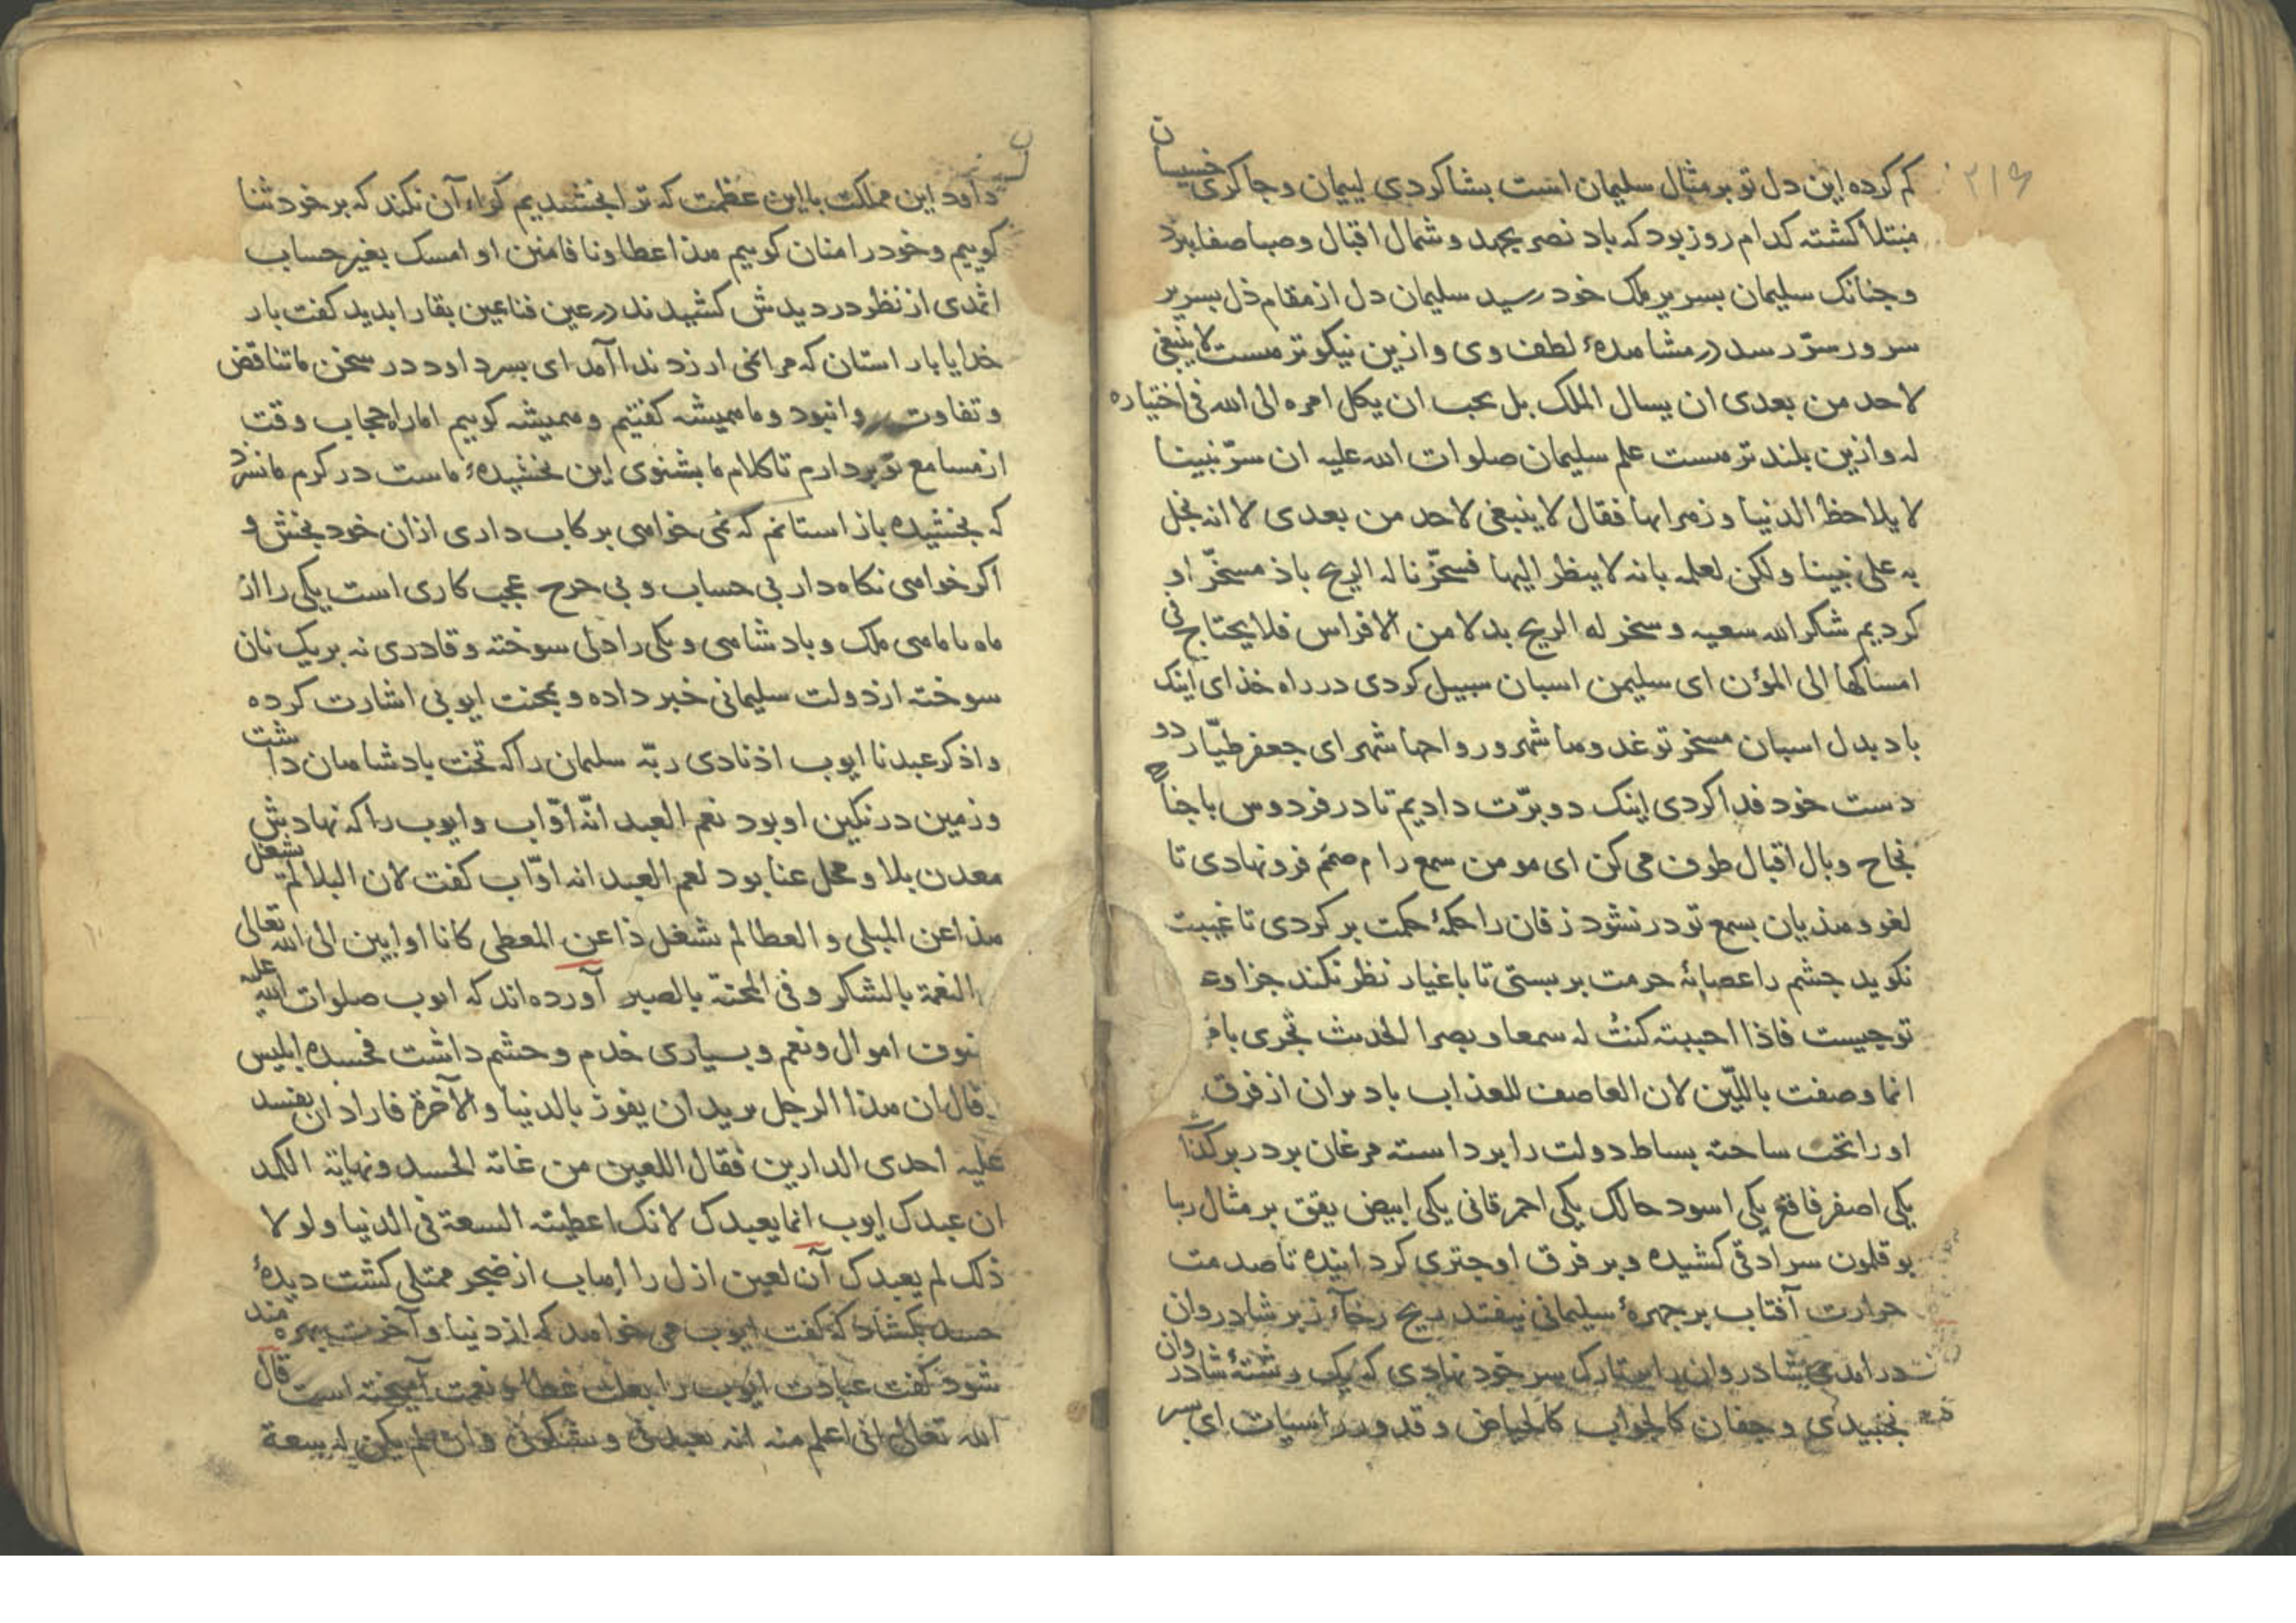 ۲۱۶
کم کرده این دل تو بر مثال سلیمان است بشاکردی لییمان و جاکری خسیسان
مبتلا کشته کدام روز بود که باد نصر بجهد و شمال اقبال و صبا صفا بیزد
و جنانک سلیمان بسریر ملک خود رسید سلیمان دل از مقام ذل بسریر
سرور سرّ رسد در مشاهدهٔ لطف وی و ازین نیکوتر هست لا ینبغی
لاحد من بعدی ان یسال الملک بل یجب ان یکل امره الی الله فی اختیاره
له و ازین بلند تر هست علم سلیمان صلوات الله علیه ان سرّ نبینا
لا یلاحظ الدنیا و زهراتها فقال لا ینبغی لاحد من بعدی لا انه بخل
به علی نبینا و لکن لعلمه بانه لا ینظر الیها فسخّرنا له الریح باذ مسخّر او
کردیم شکر الله سعیه و سخر له الریح بدلا من الافراس فلا یحتاج فی
امساکها الی المؤن ای سلیمن اسبان سبیل کردی در راه خذای اینک
باد بدل اسبان مسخر تو غدوها شهر و رواحها شهر ای جعفر طیّار دو
دست خود فدا کردی اینک دو برّت دادیم تا در فردوس با جناح
نجاح و بال اقبال طوف می کن ای مومن سمع را م صمّم فرو نهادی تا
لغو و هذیان بسمع تو در نشود زفان را حکمهٔ حکمت بر کردی تا غیبت
نکوید جشم را عصابهٔ حرمت بر بستی تا باغیار نظر نکند جزاوء
تو جیست فاذا احببته کنت له سمعا و بصرا الحدیث تجری بامر
انما وصفت باللیّن لان العاصف للعذاب باد بران از فرق
او را تخت ساخته بساط دولت را برداسته مرغان بر در بر کذاشت
یکی اصفر فاقع یکی اسود حالک یکی احمر قانی یکی ابیض یقق بر مثال ربا
بوقلمون سرادقی کشیده و بر فرق او جتری کردانیده تا صدمت
حرارت آفتاب بر جهرهٔ سلیمانی نیفتد ریح رخآء زبر شادروان
درامدی شادروان را بتارک سر خود نهادی که یک رشتهٔ شادروان
نجنبیدی و جفان کالجواب کالحیاض و قدور راسیات ای بسر
داود این مملکت با این عظمت که ترا بخشیدیم کراء آن نکند که بر خود ثنا
کوییم و خود را منان کوییم هذا عطاونا فامنن او امسک بغیر حساب
اثمدی از نظر در دیدش کشیدند در عین فنا عین بقا را بدید کفت بار
خدایا باز استان که مرا نمی ارزد ندا آمد ای بسر داود در سخن ما تناقض
و تفاوت روا نبود و ما همیشه کفتیم و همیشه کوییم اما راه حجاب وقت
از مسامع تو بر دارم تا کلام ما بشنوی این بخشیدهٔ ماست در کرم ما نسزد
که بخشیده باز استانم که نمی خواهی برکاب داری ازان خود بخش و
اکر خواهی نکاه دار بی حساب و بی حرح عجب کاری است یکی را از
ماه تا ماهی ملک و بادشاهی و یکی را دلی سوخته و قادری نه بر یک نان
سوخته از دولت سلیمانی خبر داده و بمحنت ایوبی اشارت کرده
و اذکر عبدنا ایوب اذ نادی ربّه سلیمان را که تخت بادشاهان داشت
و زمین در نکین او بود نعم العبد انّه اوّاب و ایوب را که نهادش
معدن بلا و محل عنا بود نعم العبد انه اوّاب کفت لان البلا لم یشغل
هذا عن المبلی و العطا لم یشغل ذا عن المعطی کانا اوابین الی الله تعالی
النعمة بالشکر و فی المحنة بالصبر آورده اند که ایوب صلوات الله علیه
اموال و نعم و بسیاری خدم و حشم داشت فحسده ابلیس
قال ان هذا الرجل یرید ان یفوز بالدنیا و الآخرة فاراد ان یفسد
علیه احدی الدارین فقال اللعین من غایة الحسد و نهایة الکمد
ان عبدک ایوب انما یعبدک لانک اعطیته السعة فی الدنیا و لولا
ذلک لم یعبدک آن لعین ازل را اهاب از ضجر ممتلی کشت دیدهٔ
حسد بکشاد که کفت ایوب می خواهد که از دنیا و آخرت بهره مند
شود کفت عبادت ایوب را بعلت عطا و نعمت آمیخته است قال
الله تعالی انی اعلم منه انه یعبدنی و یشکرنی و ان لم یکن له سعة